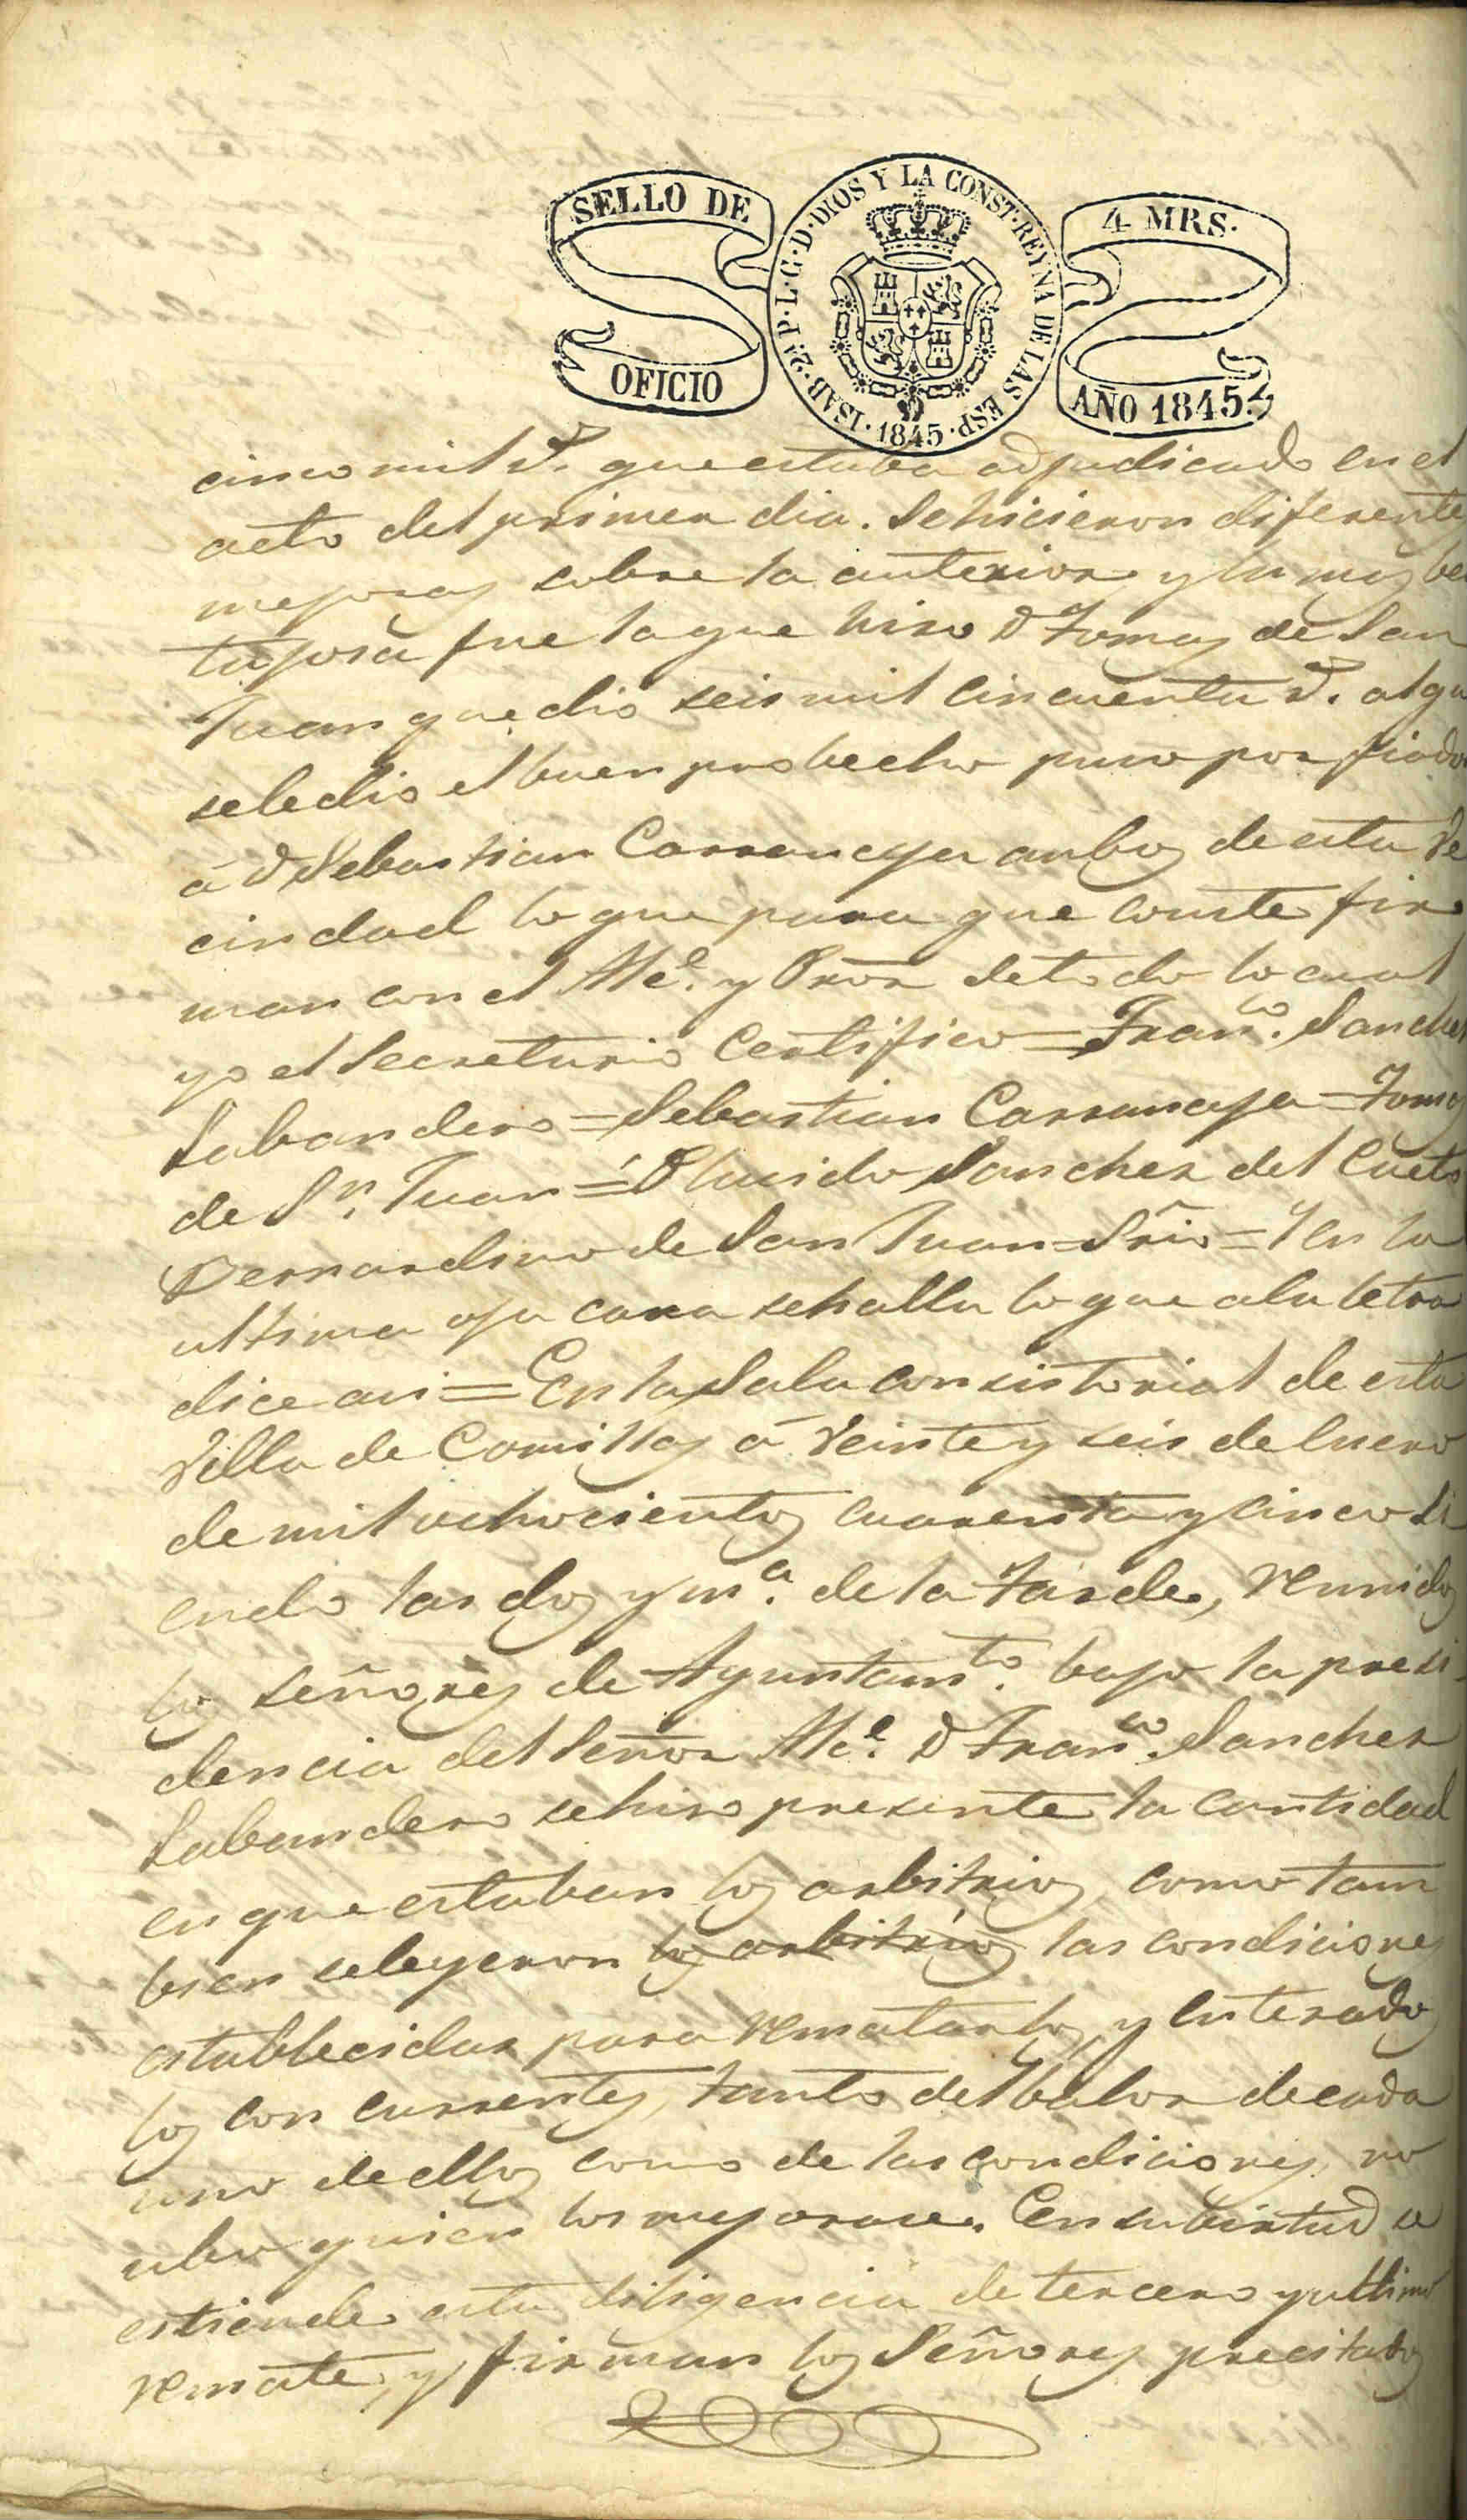 SELLO DE OFICIO
ISAB·2ª P·L·G·D·DIOS Y LA CONST·REYNA DE LAS ESP·1845·
4 MRS·
AÑO 1845.
cinco mil r.s que estaba adjudicado en el
acto del primer dia. Se hicieron diferente
mejoras sobre la anterior y la mas be
tajosa fue la que hiso D Tomas de San
Juan que dio seis mil cincuenta r.s al qu
se le dio el buen probecho puso por fiador
á D Sebastian Carranceja anbos de esta Ve
cindad lo que para que conste fir
man con el Alc.e y Prôr de todo lo cual
yo el Secretario Certifico = Fran.co Sanchez
Labandero = Sebastian Carranceja = Tomas
de S.n Juan = Placido Sanchez del Cueto
Bernardino de San Juan Srîo = Y en la
ultima oja cara se halla lo que a la letra
dice asi = En la Sala consistorial de esta
Villa de Comillas á Veinte y seis de Enero
de mil ochocientos cuarenta y cinco Si
endo las dos y m.a de la tarde, reunidos
los señores de Ayuntam.to bajo la presi
dencia del Señor Alc.e D Fran.co Sanchez
Labandero se hiso presente la cantidad
en que estaban los arbitrios, como tam
bien se leyeron los arbitrios las condiciones
establecidas para rematarlos, y Enterados
los con currentes, tanto del balor de cada
uno de ellos como de las condiciones, no
ubo quien los mejorase. En su birtud se
estiende esta diligencia de tercero y ultimo
remate, y firman los Señores precitados